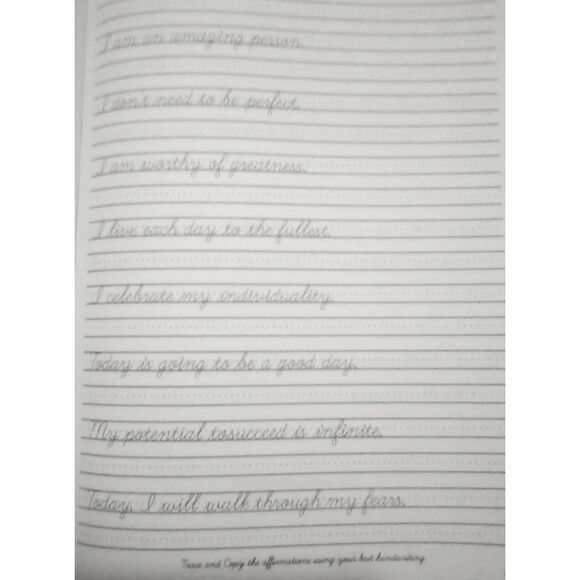 I am an amazing person.
I don't need to be perfect.
I am worthy of greatness.
I live each day to the fullest.
I celebrate my individuality.
Today is going to be a good day.
My potential tosucceed is infinite.
Today, I will walk through my fears.
Trace and Copy the affirmations using your best handwriting